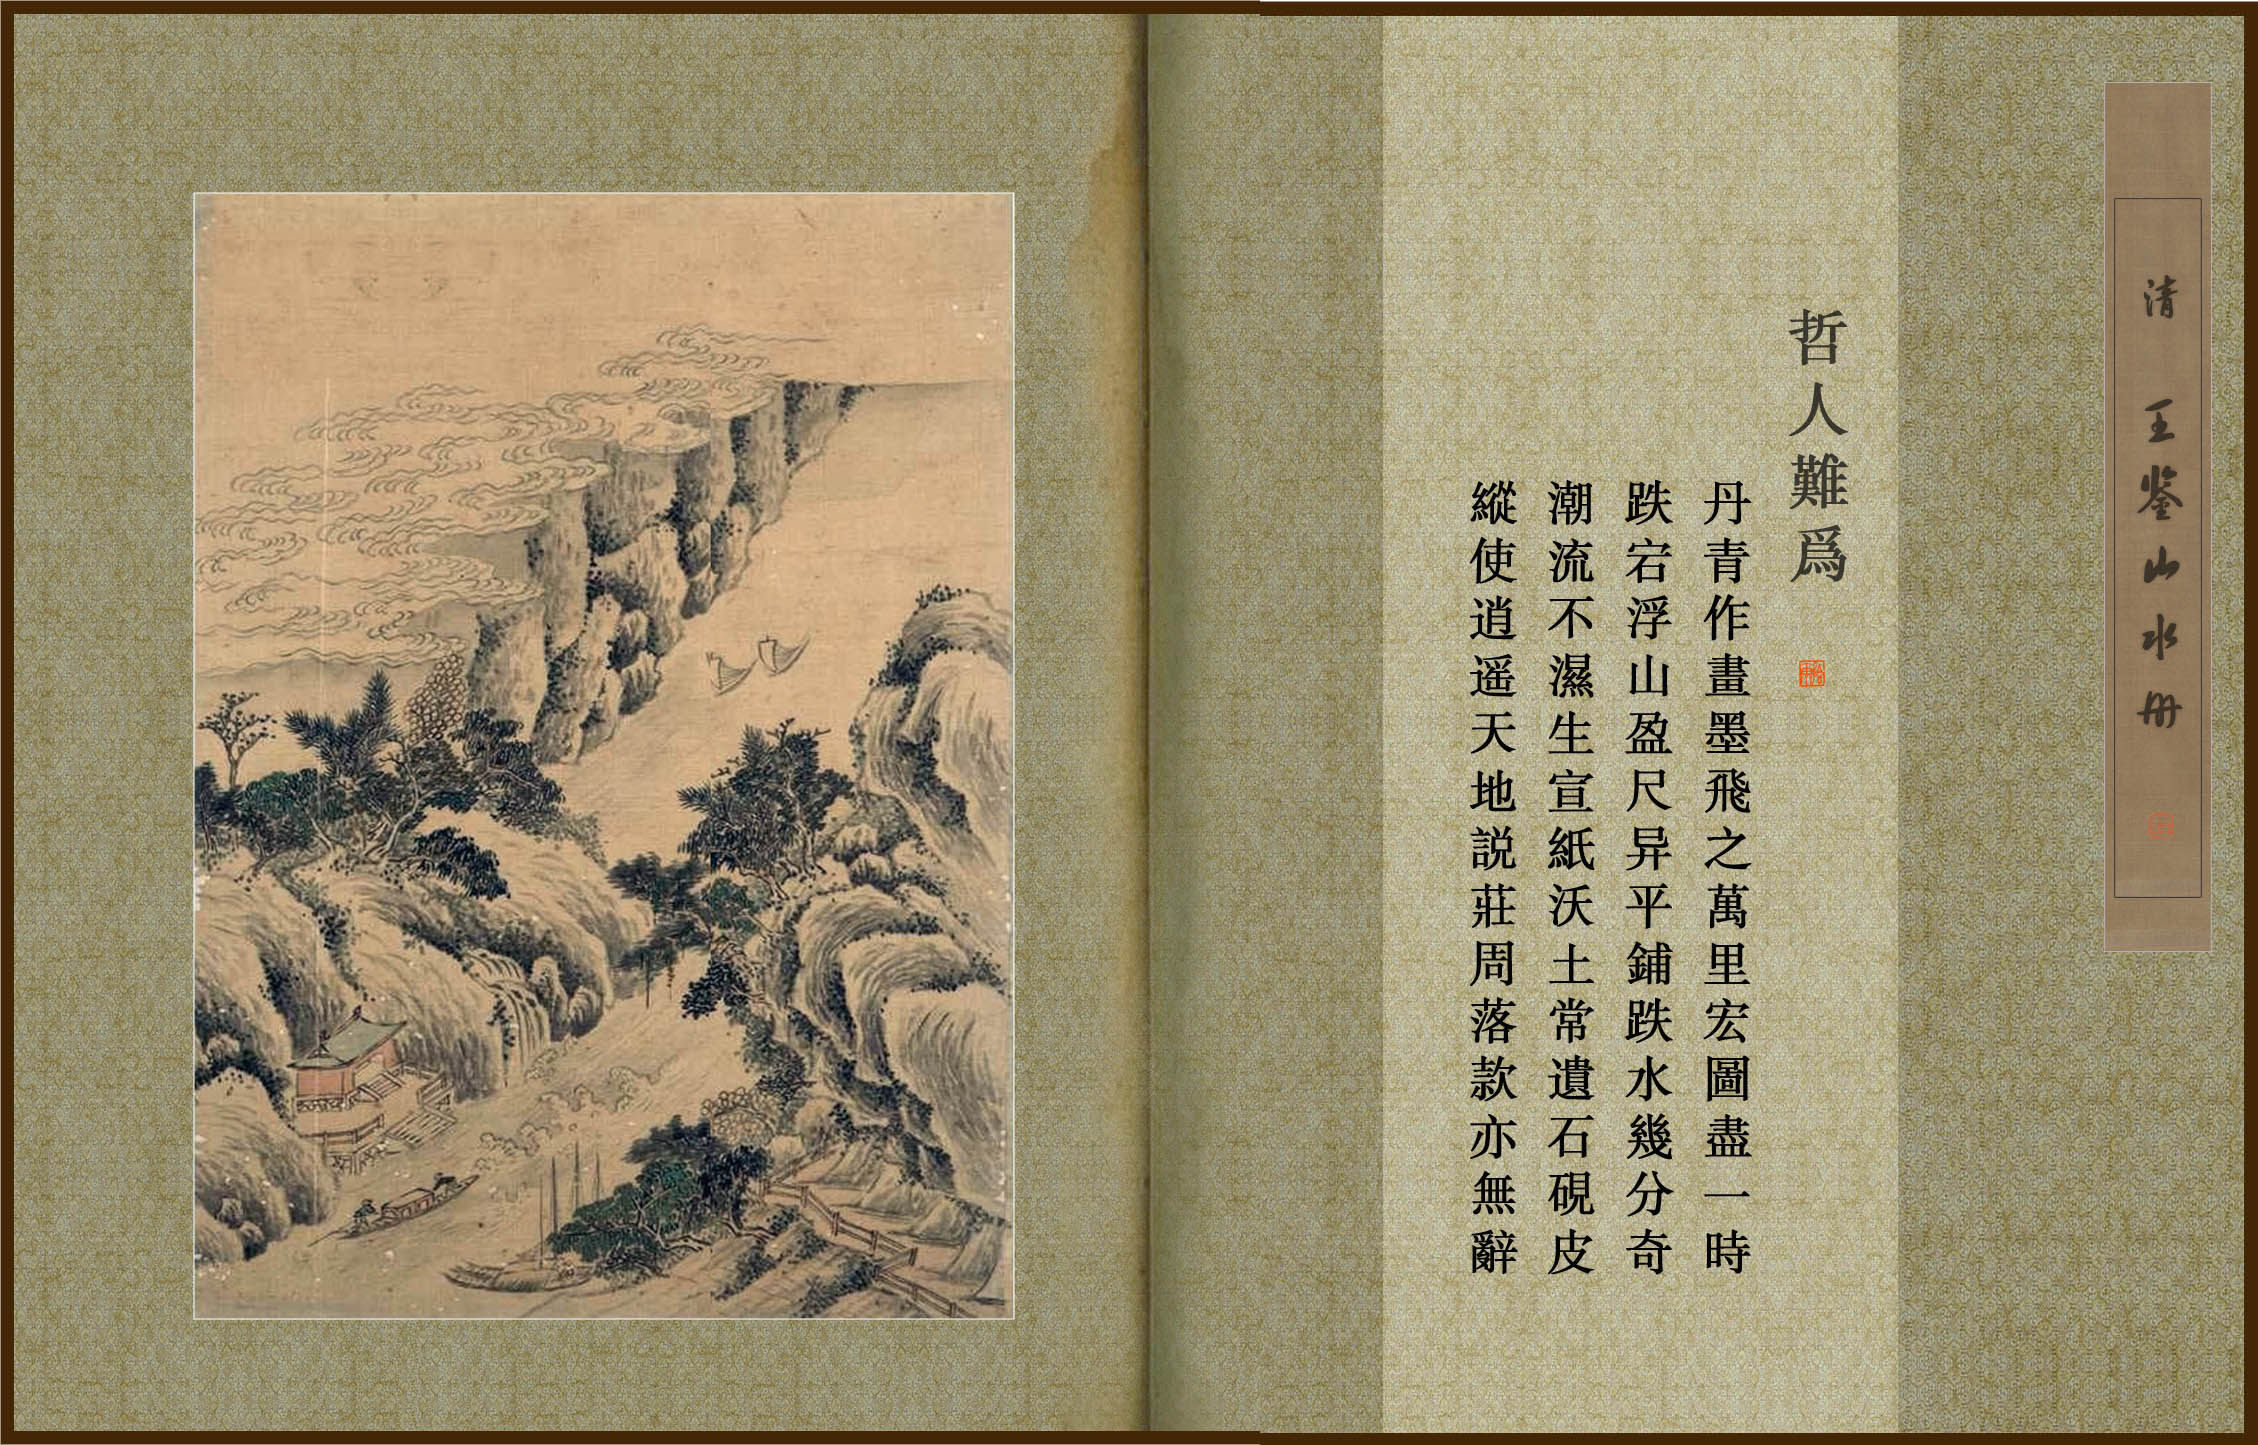 清 王鉴山水册
哲人難爲
丹青作畫墨飛之萬里宏圖盡一時
跌宕浮山盈尺异平鋪跌水幾分奇
潮流不濕生宣紙沃土常遺石硯皮
縱使逍遥天地説莊周落款亦無辭